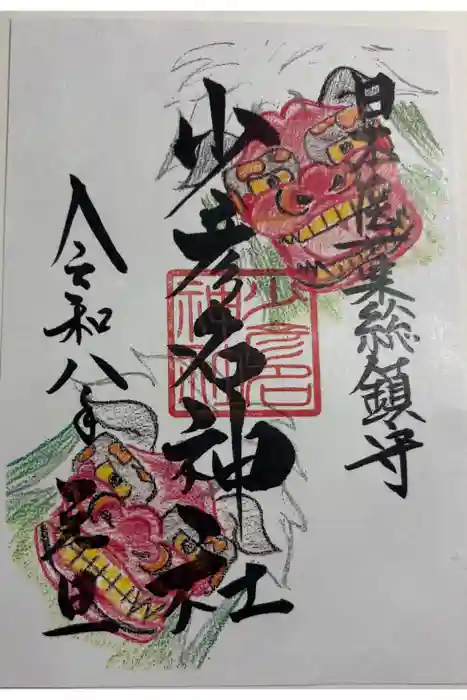 日本医薬総鎮守
少彦名神社
少彦名神社
令和八年
元旦